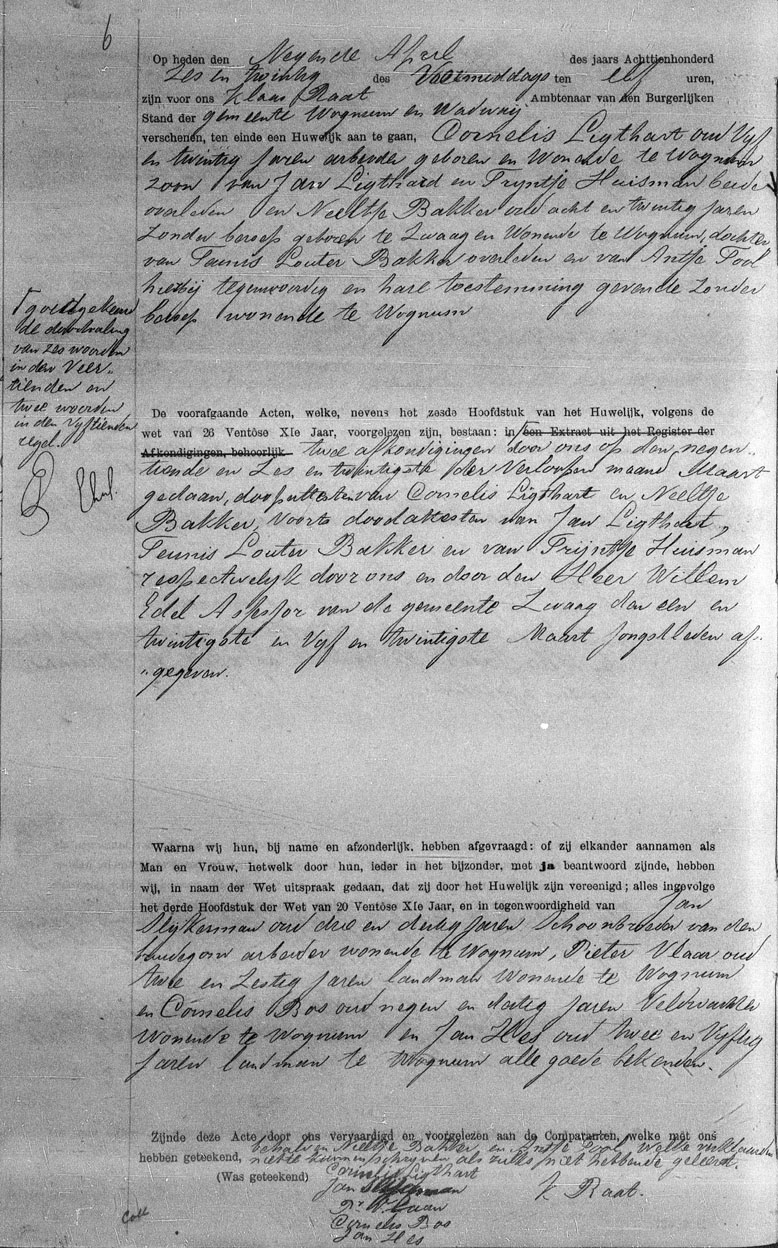 6
Op heden den Negende April des jaars Achttienhonderd
Zes en twintig des Voormiddags ten elf uren,
zijn voor ons Klaas Raat Ambtenaar van den Burgerlijken
Stand der gemeente Wognum en Wadway
verschenen, ten einde een Huwelijk aan te gaan, Cornelis Ligthart oud Vyf
en twintig Jaren arbeider geboren en Wonende te Wognum
zoon van Jan Ligthard en Tryntje Huisman beide
overleden en Neeltje Bakker oud acht en twintig Jaren
Zonder beroep geboren te Zwaag en Wonende te Wognum, dochter
van Teunis Louter Bakker overleden en van Antje Pool
hierbij tegenwoordig en hare toestemming gevende zonder
beroep wonende te Wognum
goedgekeurd
de doorhaling
van zes woorden
in den Veer-
tienden en
twee woorden
in den Vyftienden
regel.
De voorafgaande Acten, welke, nevens het zesde Hoofdstuk van het Huwelijk, volgens de
wet van 26 Ventôse XIe Jaar, voorgelezen zijn, bestaan: in een Extract uit het Register der
Afkondigingen, behoorlijk twee afkondigingen door ons op den negen-
tiende en Zes en twintigste der Verloopen maand Maart
gedaan, doopattesten van Cornelis Ligthart en Neeltje
Bakker, Voorts doodattesten van Jan Ligthart,
Teunis Louter Bakker en van Trijntje Huisman
respectivelijk door ons en door den Heer Willem
Edel Assessor van de gemeente Zwaag den een en
twintigste en Vyf en twintigste Maart Jongstleden af-
gegeven.
Waarna wij hun, bij name en afzonderlijk, hebben afgevraagd: of zij elkander aannamen als
Man en Vrouw, hetwelk door hun, ieder in het bijzonder, met ja beantwoord zijnde, hebben
wij, in naam der Wet uitspraak gedaan, dat zij door het Huwelijk zijn vereenigd; alles ingevolge
het derde Hoofdstuk der Wet van 20 Ventôse XIe Jaar, en in tegenwoordigheid van Jan
Slijkerman oud drie en dertig Jaren Schoonbroeder van den
bruidegom arbeider wonende te Wognum, Pieter Vlaar oud
twee en Zestig Jaren landman Wonende te Wognum
en Cornelis Bos oud negen en dertig Jaren Veldwachter
Wonende te Wognum en Jan Hes oud twee en Vyftig
Jaren landman te Wognum alle goede bekenden.
Zijnde deze Acte door ons vervaardigd en voorgelezen aan de Comparanten, welke met ons
hebben geteekend, behalven Neeltje Bakker en Antje Pool, welke verklaarden
niet te kunnen schrijven als zulks niet hebbende geleerd.
(Was geteekend) Cornelis Ligthart
Jan Slijkerman K. Raat.
Pr. Vlaar
Cornelis Bos
Jan Hes